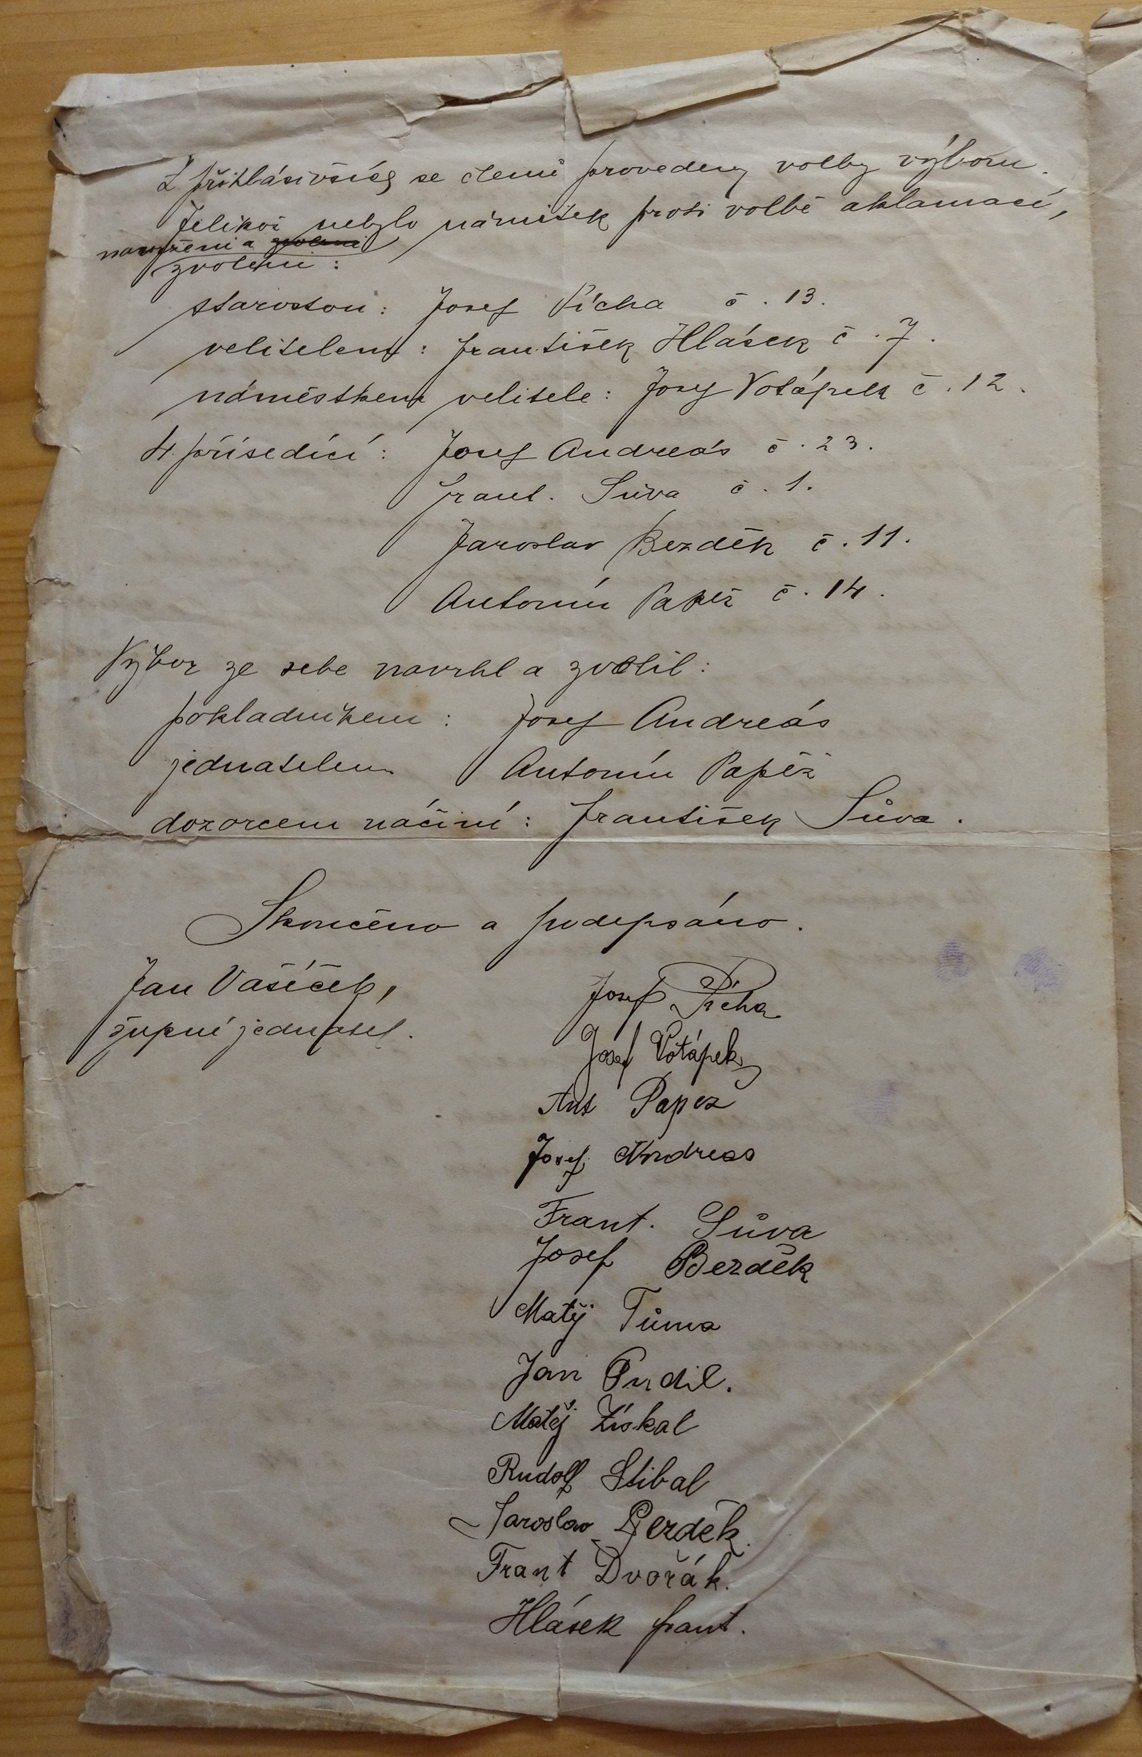 Z přihlásivších se členů provedeny volby výboru.
Jelikož nebylo námitek proti volbě aklamací,
navrženi a zvoleni
zvoleni:
starostou: Josef Pícha č. 13.
velitelem: František Hlásek č. 7.
náměstkem velitele: Josef Votápek č. 12.
4 přísedící: Josef Andreás č. 23.
Frant. Sůva č. 1.
Jaroslav Bezděk č. 11.
Antonín Papež č. 14.
Výbor ze sebe navrhl a zvolil:
pokladníkem: Josef Andreás
jednatelem Antonín Papěž
dozorcem náčiní: František Sůva.
Skončeno a podepsáno.
Jan Vašíček,
župní jednatel.
Josef Pícha
Josef Votápek
Ant Papez
Josef Andreas
Frant. Sůva
Josef Bezděk
Matěj Tůma
Jan Pudil.
Matěj Získal
Rudolf Stibal
Jaroslav Bezděk.
Frant Dvořák.
Hlásek Frant.